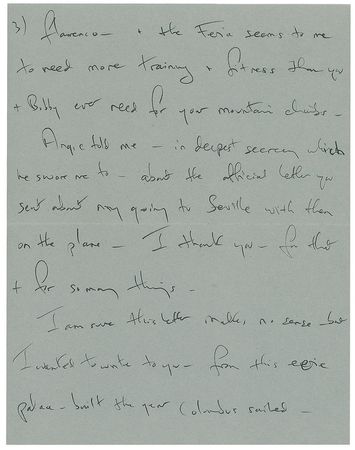 3) flamenco — + the Feria seems to me
to need more training + fitness than you
+ Bobby ever need for your mountain climbs —
Angie told me — in deepest secrecy which
he swore me to — about the official letter you
sent about my going to Seville with them
on the plane — I thank you — for that
+ for so many things —
I am sure this letter makes no sense — but
I wanted to write to you — from this eerie
palace — built the year Columbus sailed —